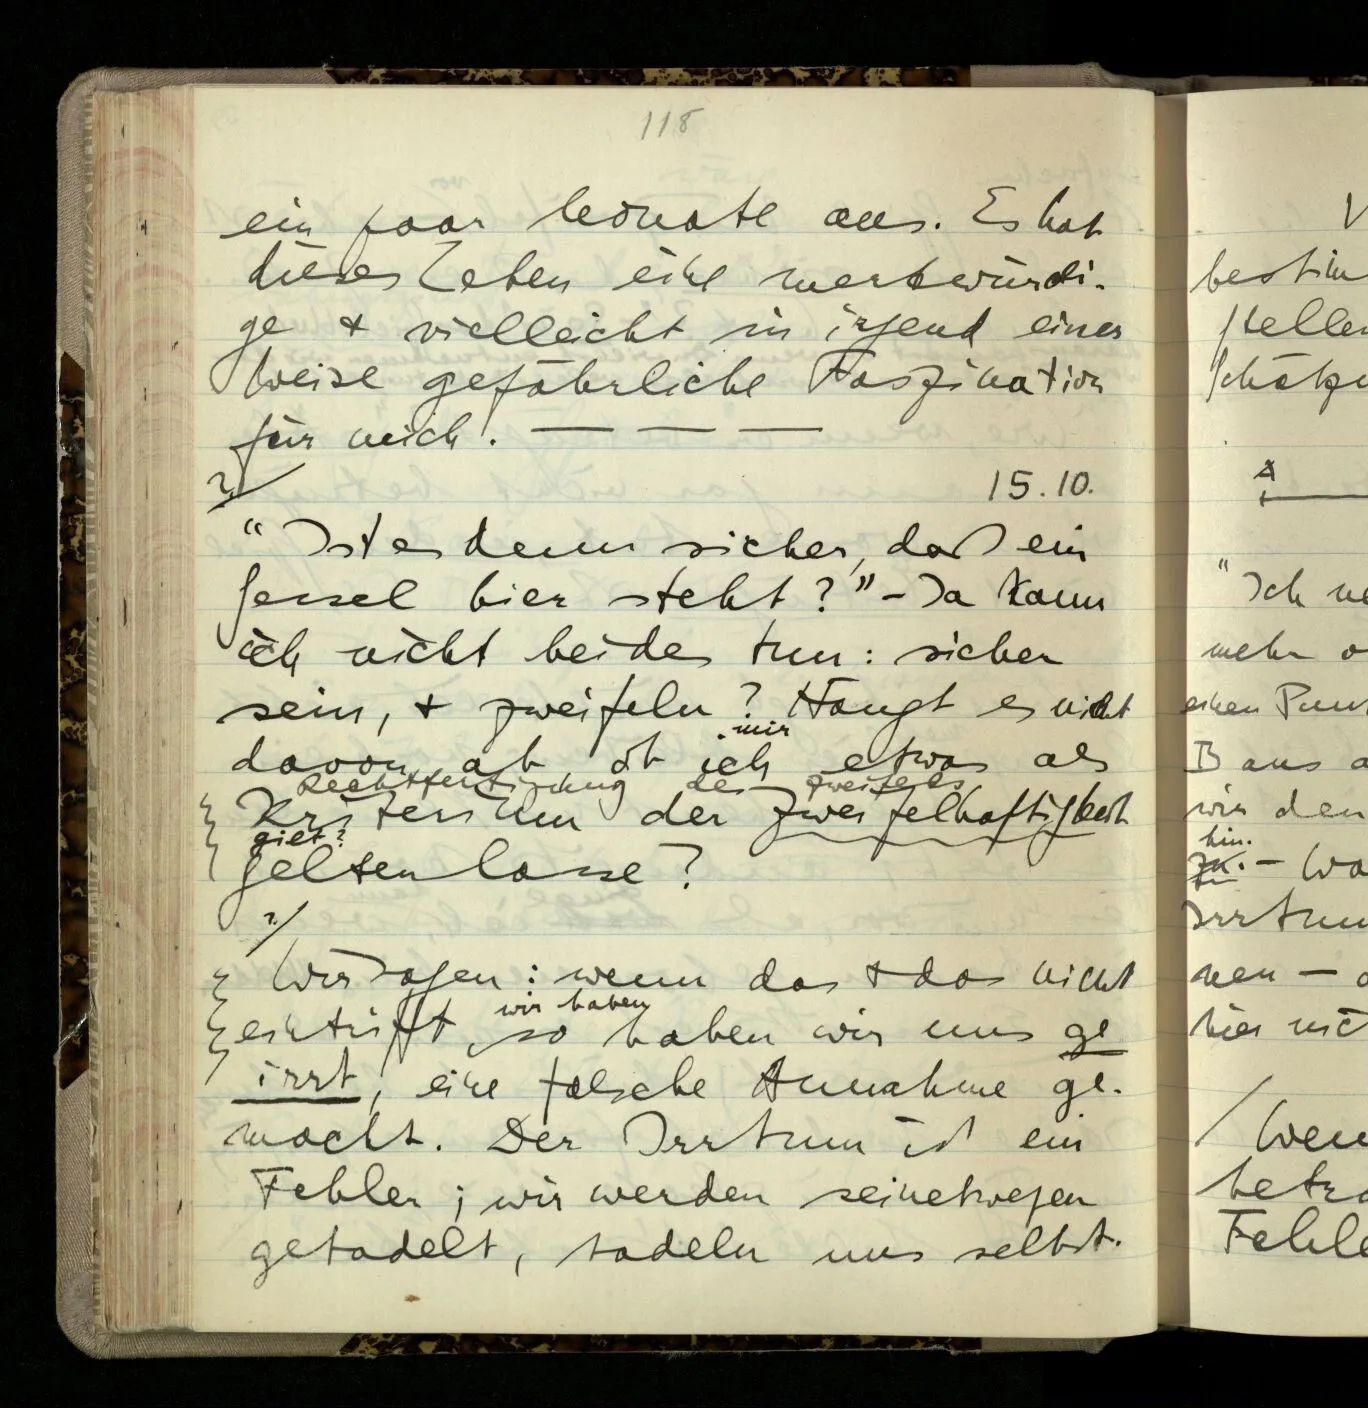 118
ein paar Monate aus. Es hat
dieses Leben eine merkwürdi-
ge & vielleicht in irgend einer
Weise gefährliche Faszination
für mich. — — —
?/ 15.10.
“Ist es denn sicher, daß ein
Sessel hier steht?” – Ja kann
ich nicht beides tun: sicher
sein, & zweifeln? Hängt es nicht
davon ab ob ich etwas als
mir
Rechtfertigung des Zweifels
Kriterium der Zweifelhaftigkeit
gilt?
gelten lasse?
?/
Wir sagen: wenn das & das nicht
wir haben
eintrifft, so haben wir uns ge
irrt, eine falsche Annahme ge-
macht. Der Irrtum ist ein
Fehler; wir werden seinetwegen
getadelt, tadeln uns selbst.
bestim
stellen
schätzu
A
“Ich we
mehr o
einen Punkt
B aus a
wir den
hin.
– Wa
Irrtum
nen – d
hier nich
/ Wen
betra
Fehle